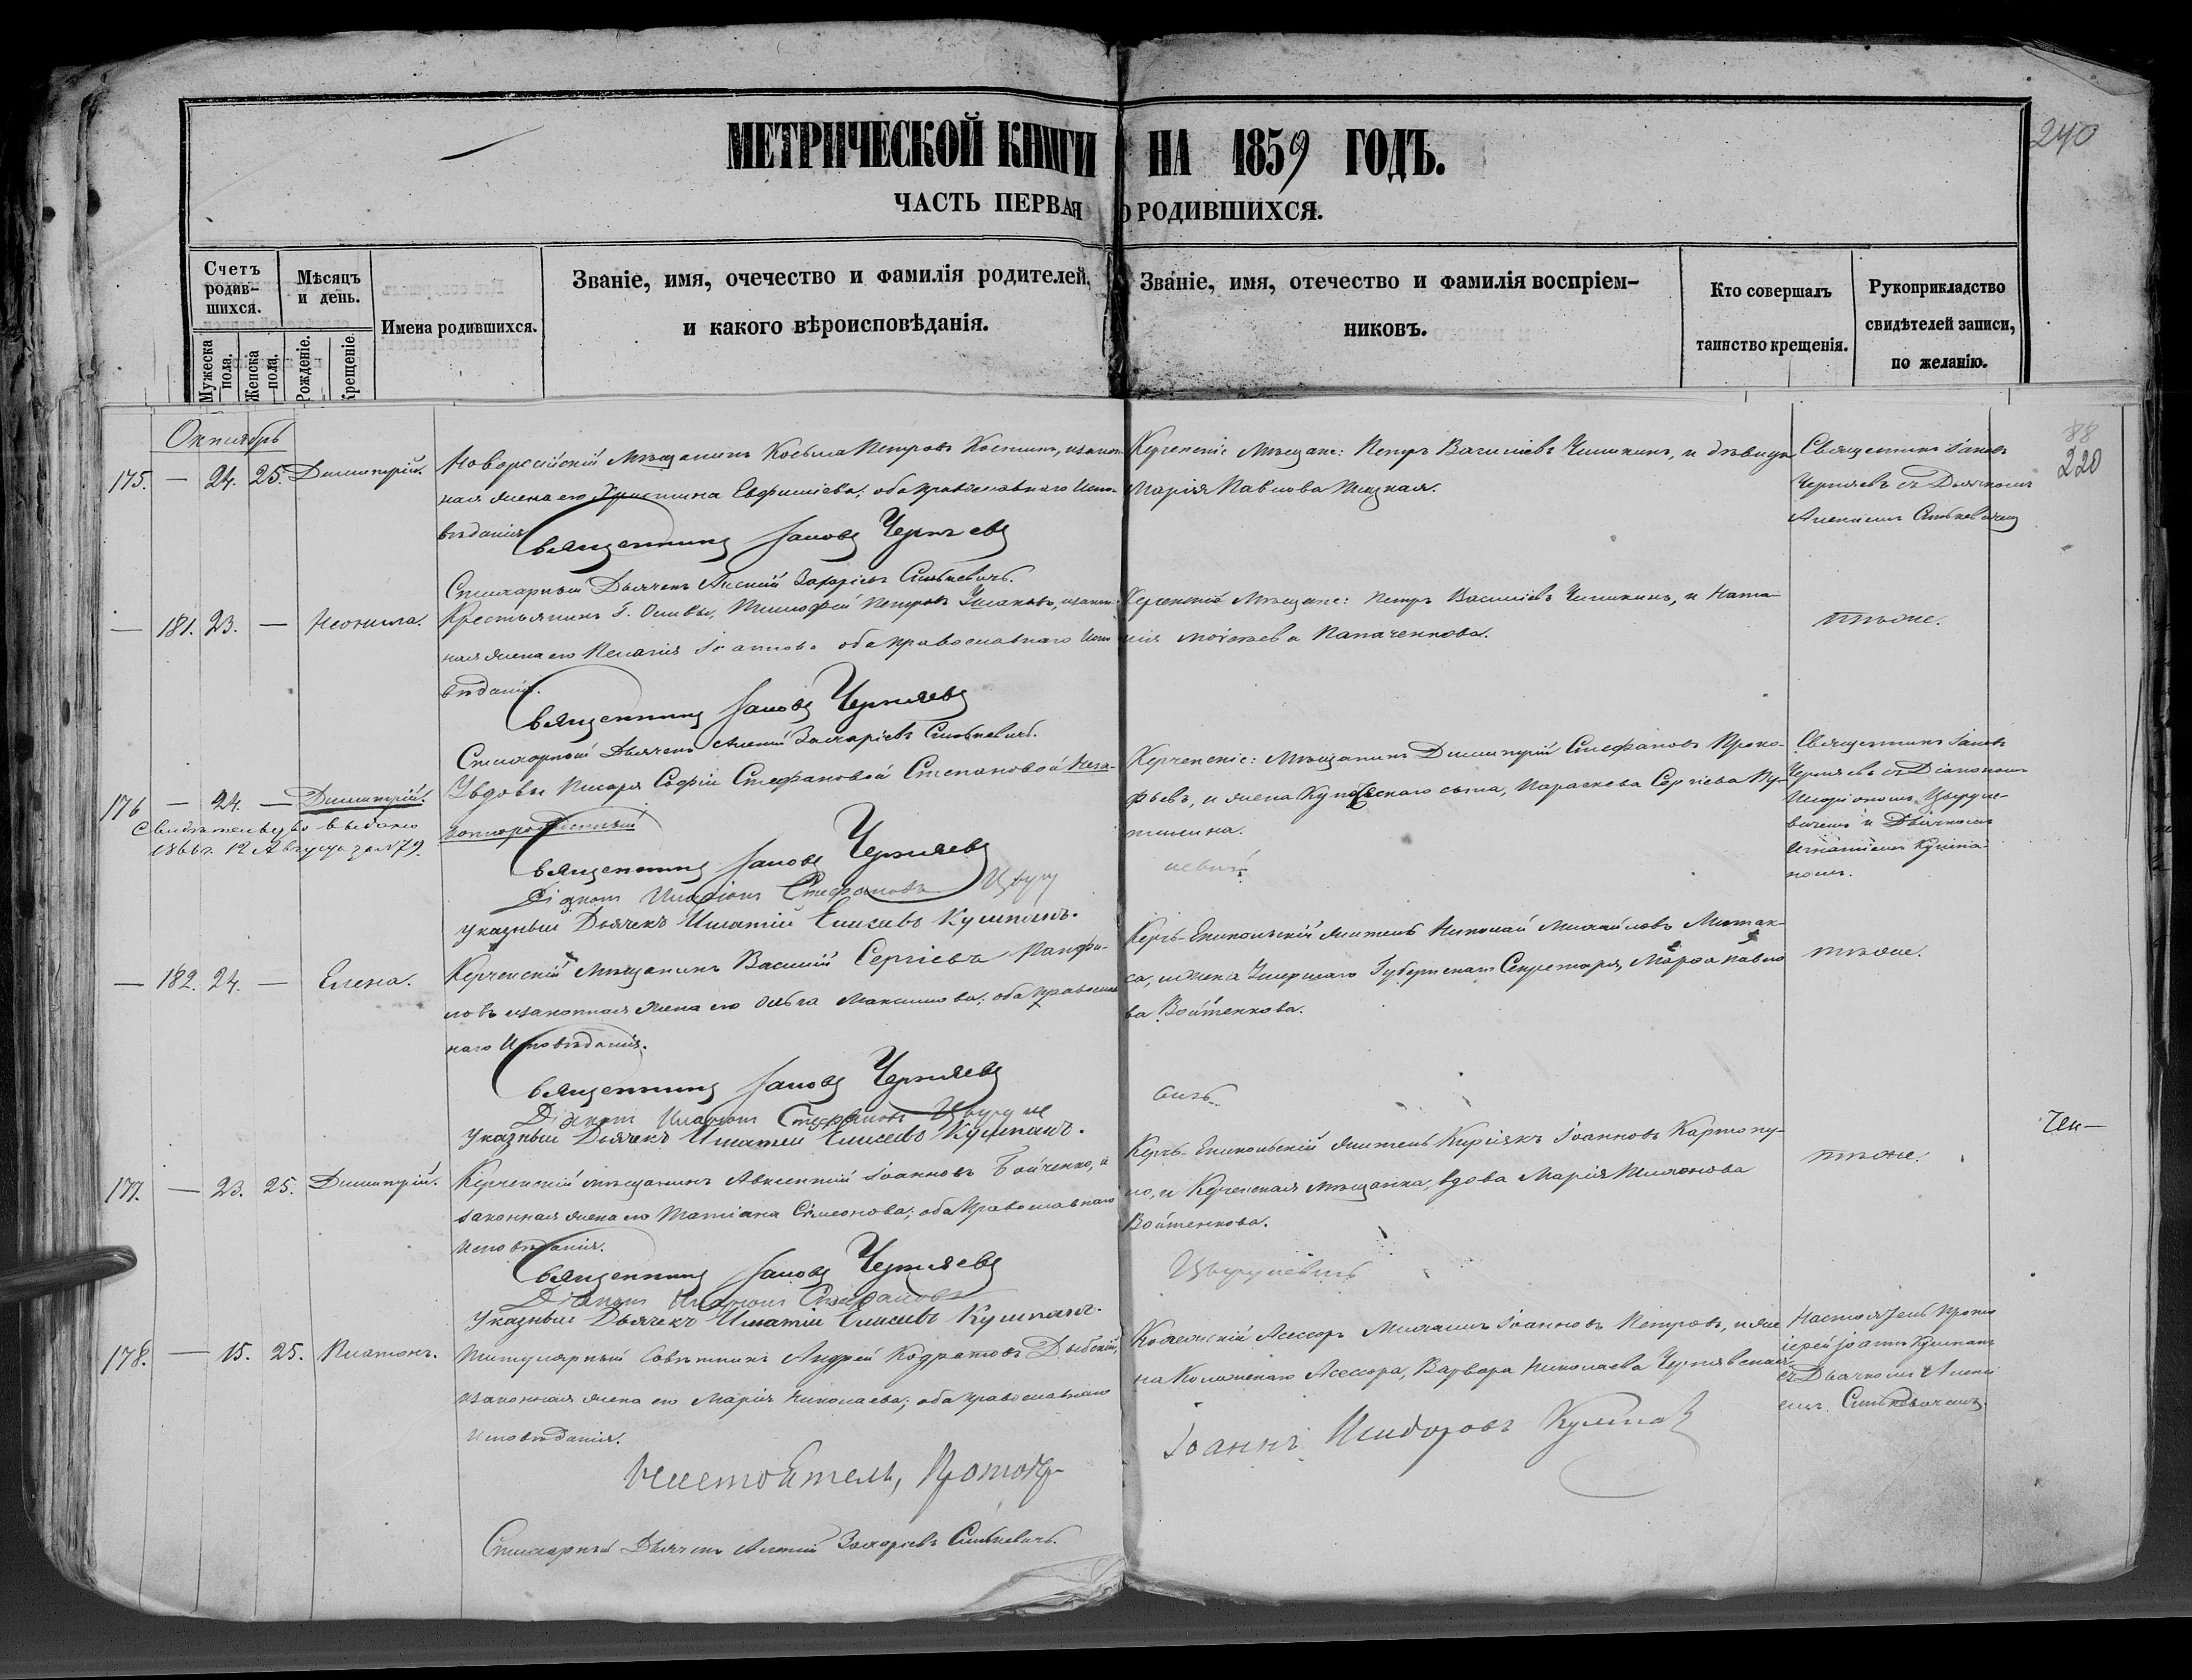 МЕТРИЧЕСКОЙ КНИГИ НА 1859 ГОДЪ.
240
ЧАСТЬ ПЕРВАЯ О РОДИВШИХСЯ.
Счетъ родив-шихся.
Мужеска пола.
Женска пола.
Мѣсяцъ и день.
Рожденіе.
Крещеніе.
Имена родившихся.
Званіе, имя, очечество и фамилія родителей,
и какого вѣроисповѣданія.
Званіе, имя, отечество и фамилія воспріем-
никовъ.
Кто совершалъ
таинство крещенія.
Рукоприкладство
свидѣтелей записи,
по желанію.
Октябрь
88
220
175. — 24. 25. Димитрій.
Новоросійскій Мѣщанинъ Косьма Петровъ Костинъ, изакон
ная жена его Христина Евфиміева; оба православнаго Испо-
вѣданія
Священникъ Іаковъ Черняевъ
Стихарный Дьячекъ Алексій Захаріевъ
Керченскіе Мѣщане: Петръ Василіевъ Чишкинъ, и дѣвица
Марія Павлова
Священникъ Іаковъ
Черняевъ съ Дьячкомъ
— 181. 23. — Неонила.
Крестьянинъ Петровъ изакон-
ная жена его Пелагія Іоаннова оба православнаго Испо
вѣданія.
Священникъ Іаковъ Черняевъ
Стихарный Дьячекъ Алексій Захаріевъ
Керченскіе Мѣщане: Петръ Василіевъ Чишкинъ, и Ната-
лія Моѵсеева
тѣже.
176 — 24. — Димитрій.
Свидѣтельство выдано
1866г. 12 Августа за №79.
Удовы Писаря Софіи Стефановой Степановой Неза-
коннорожденный
Священникъ Іаковъ Черняевъ
Діаконъ Иларіонъ Стефановъ Цыру
левичъ
указный Дьячекъ Игнатій Елисеевъ Кушпанъ.
Керченскіе: Мѣщанинъ Димитрій Стефановъ Проко-
фьевъ, и жена Купеческаго сына, Параскева Сергіева
Священникъ Іаковъ
Черняевъ съ Діакономъ
Иларіономъ Цыруле-
вичемъ и Дьячкомъ
Игнатіемъ Кушпа-
номъ.
— 182. 24. — Елена.
Керченскій Мѣщанинъ Василій Сергіевъ Панфи-
ловъ изаконная жена его Ольга Максимова; оба православ
наго Исповѣданія.
Священникъ Іаковъ Черняевъ
Діаконъ Иларіонъ Стефановъ Цыруле
указный Дьячекъ Игнатій Елисеевъ Кушпанъ.
Керчь-Еникольскій житель Николай Михайловъ Митак-
са, и жена Умершаго Губернскаго Секретаря, Марѳа Павло
ва Войтенкова.
тѣже.
177. — 23. 25. Димитрій.
Керченскій мѣщанинъ Авксентій Іоанновъ Бойченко, и
законная жена его Татіана Сѵмеонова; оба Православнаго
Исповѣданія.
Священникъ Іаковъ Черняевъ
Діаконъ Иларіонъ Стефановъ
Цырулевичъ
указный Дьячекъ Игнатій Елисеевъ Кушпанъ.
Керчь-Еникольскій житель Киріякъ Іоанновъ
ло, и Керченская мѣщанка, вдова Марія
Войтенкова.
тѣже.
178. — 15. 25. Платонъ.
Титулярный Совѣтникъ Андрей Кодратовъ Дыбскій,
изаконная жена его Марія Николаева; оба православнаго
Исповѣданія.
Настоятель, Протоіер
Іоаннъ Исидоровъ
Стихарный Дьячекъ Алексій Захаріевъ
Колежскій Асессоръ Іоанновъ Петровъ, и же
на Коллежскаго Асессора, Варвара Николаева Чернявская
Настоятель Прото
іерей Іоаннъ
съ Дьячкомъ Алексі
емъ